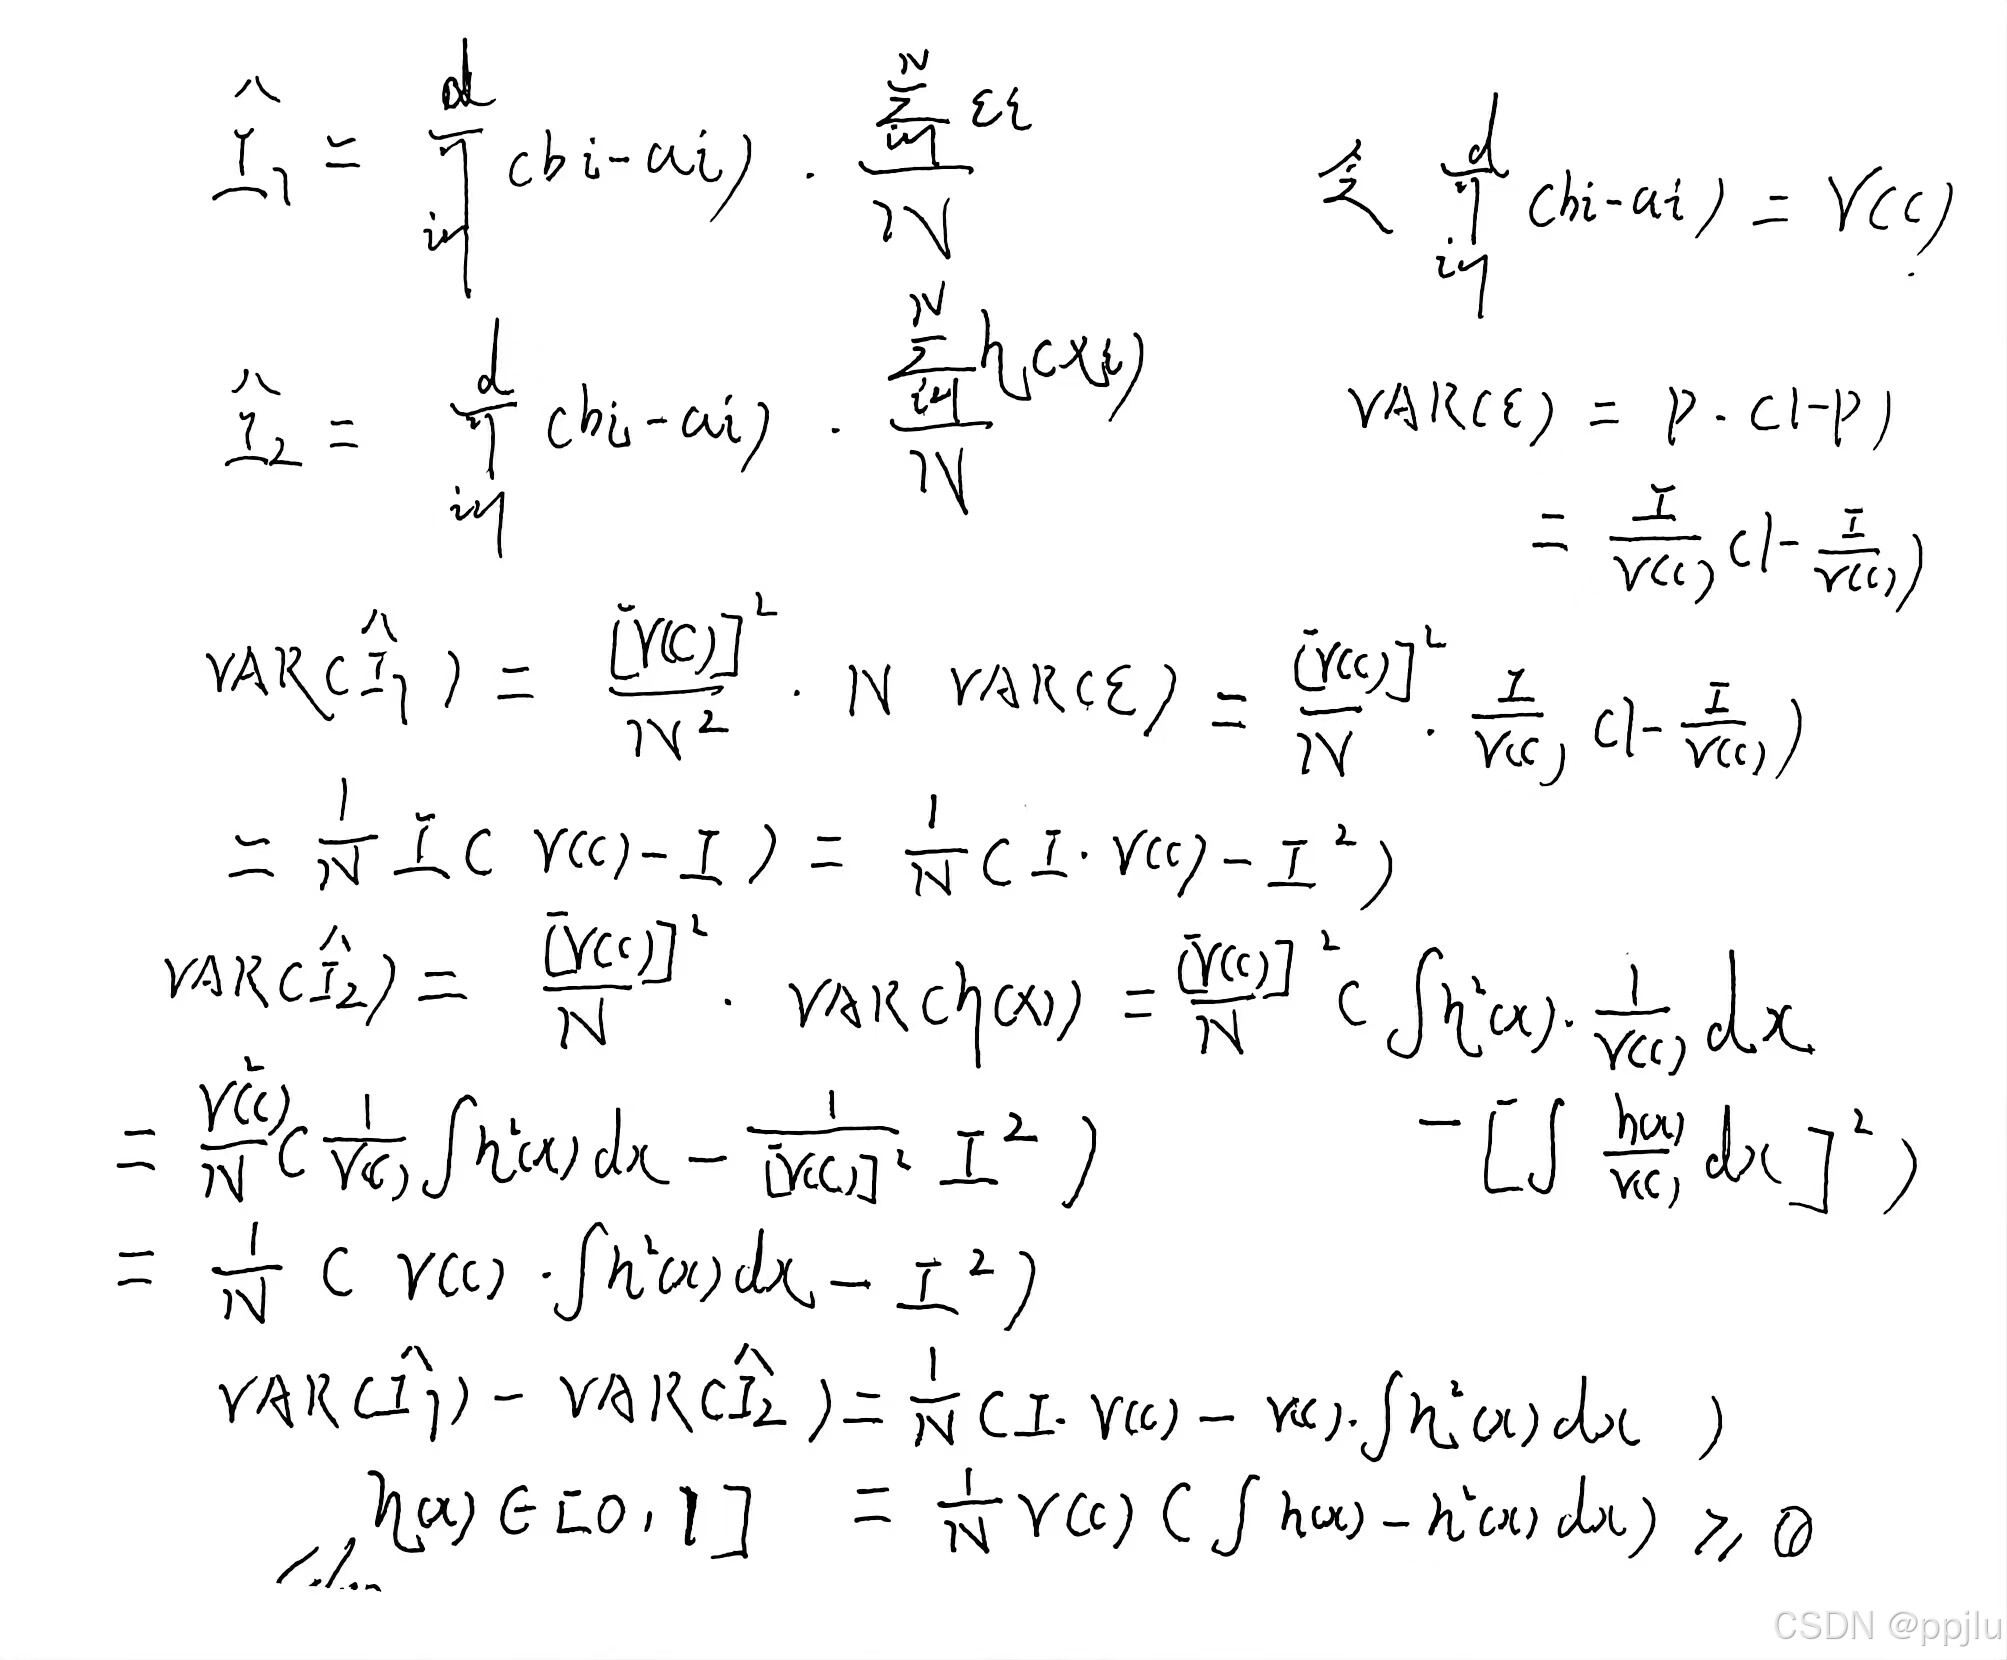 Î₁ = ∏_{i=1}^{d} (bi-ai) · \frac{∑_{i=1}^{N} εi}{N}
令 ∏_{i=1}^{d} (bi-ai) = V(C)
Î₂ = ∏_{i=1}^{d} (bi-ai) · \frac{∑_{i=1}^{N} h(xi)}{N}
VAR(ε) = p·(1-p)
= \frac{I}{V(C)} (1-\frac{I}{V(C)})
VAR(Î₁) = \frac{[V(C)]²}{N²} · N VAR(ε) = \frac{[V(C)]²}{N} · \frac{I}{V(C)} (1-\frac{I}{V(C)})
= \frac{1}{N} I (V(C)-I) = \frac{1}{N} (I·V(C)-I²)
VAR(Î₂) = \frac{[V(C)]²}{N} · VAR(h(x)) = \frac{[V(C)]²}{N} (∫h²(x)·\frac{1}{V(C)} dx
-[∫\frac{h(x)}{V(C)} dx]²)
= \frac{V(C)²}{N} (\frac{1}{V(C)} ∫h²(x)dx - \frac{1}{[V(C)]²} I²)
= \frac{1}{N} (V(C)·∫h²(x)dx - I²)
VAR(Î₁) - VAR(Î₂) = \frac{1}{N} (I·V(C) - V(C)·∫h²(x)dx)
h(x) ∈ [0,1] = \frac{1}{N} V(C) (∫h(x)-h²(x)dx) ≥ 0
CSDN @ppjlu